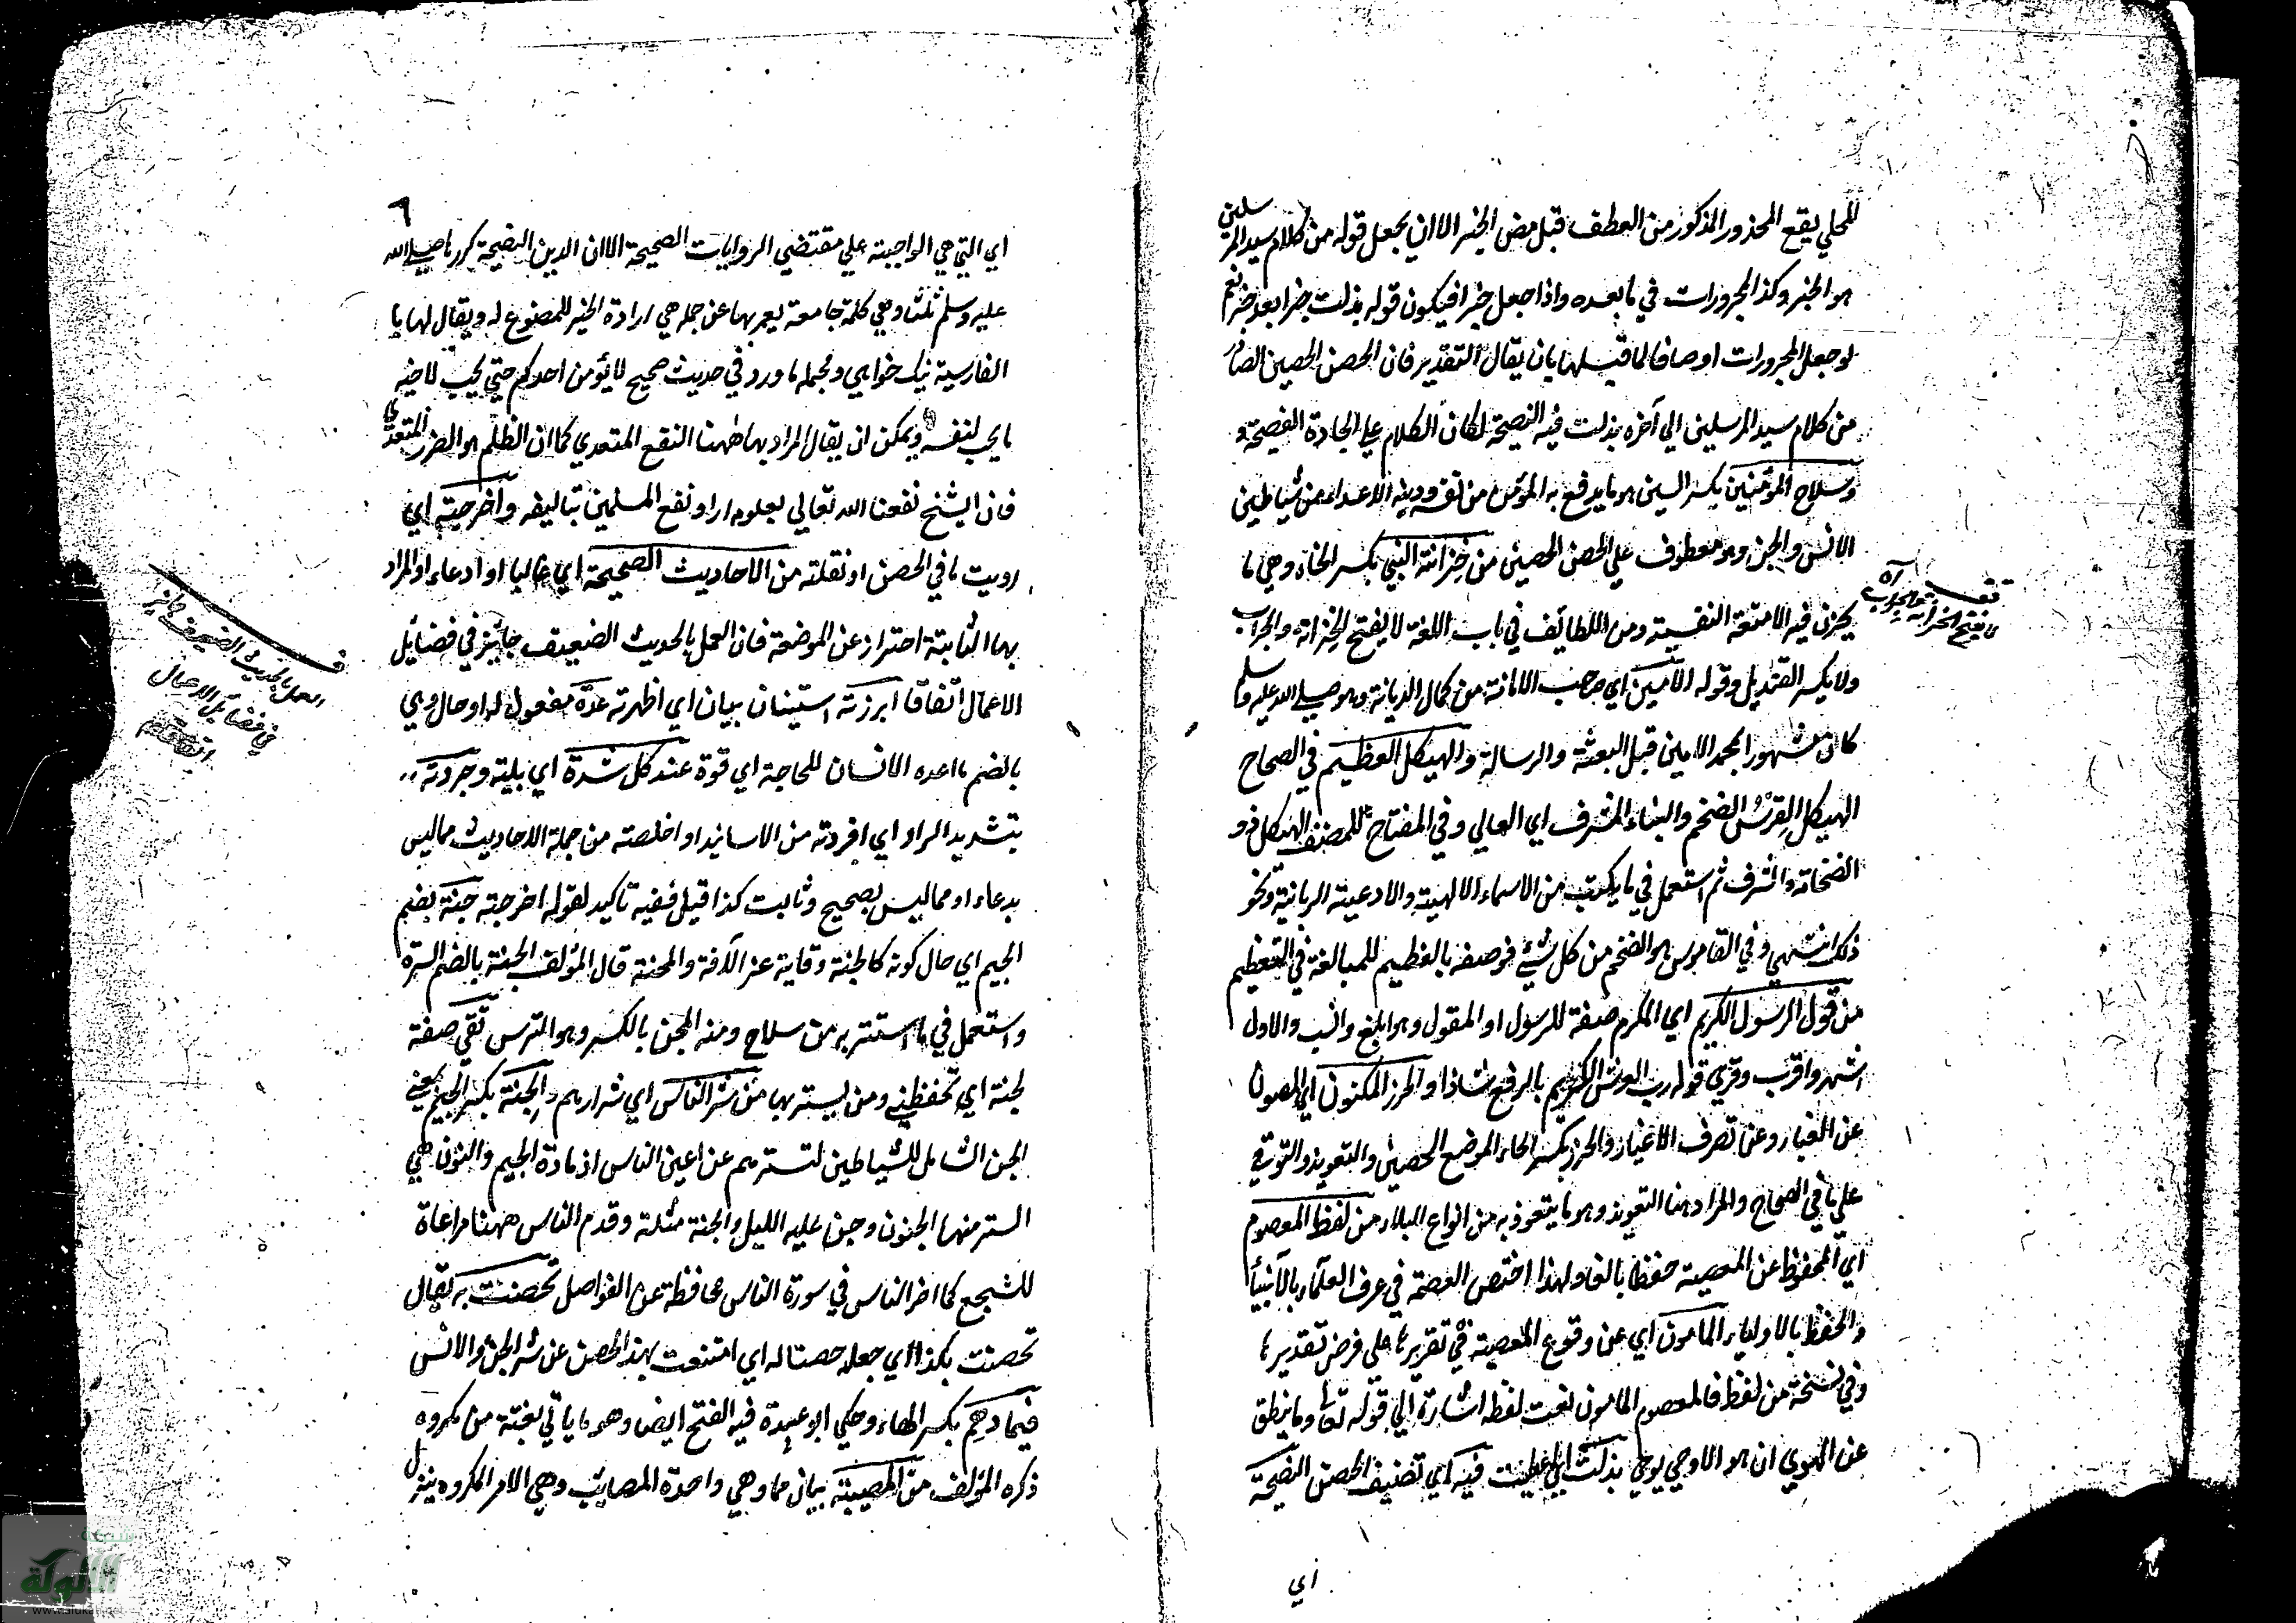 للمحلي يقع المحذور المذكور من العطف قبل مضي الخبر الا ان يجعل قوله من كلام سيد المرسلين
هو الخبر وكذا المجرورات في ما بعده واذا جعل خبرا فيكون قوله بذلت خبرا بعد خبر نعم
لو جعل المجرورات اوصافا لما قبلها بان يقال التقدير فان الحصن الحصين الصادر
من كلام سيد المرسلين الي آخره بذلت فيه النصيحة لكان الكلام علي الجادة الفصيحة و
وسلاح المؤمنين بكسر السين هو ما يدفع به المؤمن من نفسه ودينه الاعداء من شياطين
الانس والجن وهو معطوف علي الحصن الحصين من خزانة النبي بكسر الخاء وهي ما
يخزن فيه الامتعة النفيسة ومن اللطائف في باب اللغة لا يفتح الخزانة والجراب
ولا يكسر القنديل وقوله الامين اي صاحب الامانة من كمال الديانة وهو صلي الله عليه وسلم
كان مشهورا بمحمد الامين قبل البعثة والرسالة والهيكل العظيم في الصحاح
الهيكل الفرس الضخم والبناء المشرف اي العالي وفي المفتاح للمصنف الهيكل ذو
الضخامة والشرف ثم استعمل في ما يكتب من الاسماء الالهية والادعية الربانية ونحو
ذلك انتهي وفي القاموس هو الضخم من كل شئ فوصفه بالعظيم للمبالغة في التعظيم
من قول الرسول الكريم اي المكرم صفة للرسول او المقول وهو ابلغ وانسب والاول
اشهر واقرب وقري قوله رب العرش الكريم بالرفع شاذا والحرز المكنون اي المصون
عن الغبار وعن تصرف الاغيار والحرز بكسر الحاء الموضع الحصين والتعويذ والتوقي
علي ما في الصحاح والمراد هنا التعويذ وهو ما يتعوذ به من انواع البلاء من لفظ المعصوم
اي المحفوظ عن المعصية حفظا بالغا ولهذا اختص العصمة في عرف العلماء بالانبياء
والحفظ بالاولياء المامون اي عن وقوع المعصية في تقرير ما علي فرض تقدير ما
وفي نسخة من لفظ فالمعصوم المامون نعت لفظه اشارة الي قوله تعالي وما ينطق
عن الهوي ان هو الا وحي يوحي بذلت اي اعطيت فيه اي تصنيف الحصن النصيحة
اي
لا يفتح الخزانة والجراب
٦
اي التي هي الواجبة علي مقتضي الروايات الصحيحة الا ان الدين النصيحة كررها صلي الله
عليه وسلم ثلثا وهي كلمة جامعة يعبر بها عن جملة هي ارادة الخير للمنصوح له ويقال لها با
الفارسية نيك خواهي ومجمله ما ورد في حديث صحيح لا يؤمن احدكم حتي يحب لاخيه
ما يحب لنفسه ويمكن ان يقال المراد بها ههنا النفع المتعدي كما ان الظلم هو الضرر المتعدي
فان الشيخ نفعنا الله تعالي بعلومه اراد نفع المسلمين بتاليفه وآخرجته اي
رويت ما في الحصن او نقلته من الاحاديث الصحيحة اي غالبا او ادعاء او المراد
بها الثابتة احتراز عن الموضوعة فان العمل بالحديث الضعيف جائز في فضائل
الاعمال اتفاقا ابرزته استيناف بيان اي اظهرته عدة مفعول له او حال وهي
بالضم ما اعده الانسان للحاجة اي قوة عند كل شدة اي بلية وجردته
بتشديد الراء اي افردته من الاسانيد او اخلصته من جملة الاحاديث مما ليس
بدعاء او مما ليس بصحيح وثابت كذا قيل ففيه تاكيد لقوله اخرجته جنة بضم
الجيم اي حال كونه كالجنة وقاية عن الآفة والمحنة قال المؤلف الجنة بالضم السترة
واستعمل في ما استتر به من سلاح ومنه المجن بالكسر وهو الترس تقي صفة
لجنة اي تحفظني ومن يستر بها من شر الناس اي شرارهم والجنة بكسر الجيم يعني
الجن الشامل للشياطين لتسترهم عن اعين الناس اذ مادة الجيم والنون هي
الستر منها الجنون وجن عليه الليل والجنة مثلثة وقدم الناس ههنا مراعاة
للسجع كما اخر الناس في سورة الناس محافظة عن الفواصل تحصنت به يقال
تحصنت بكذا اي جعله حصنا له اي امتنعت بهذا الحصن عن شر الجن والانس
فيما دهم بكسر الهاء وحكي ابو عبيدة فيه الفتح ايضا وهو ما ياتي بغتة من مكروه
ذكره المؤلف من المصيبة بيان مما وهي واحدة المصائب وهي الامر المكروه ينزل
العمل بالحديث الضعيف جائز
في فضائل الاعمال
اتفاقا
الألوكة